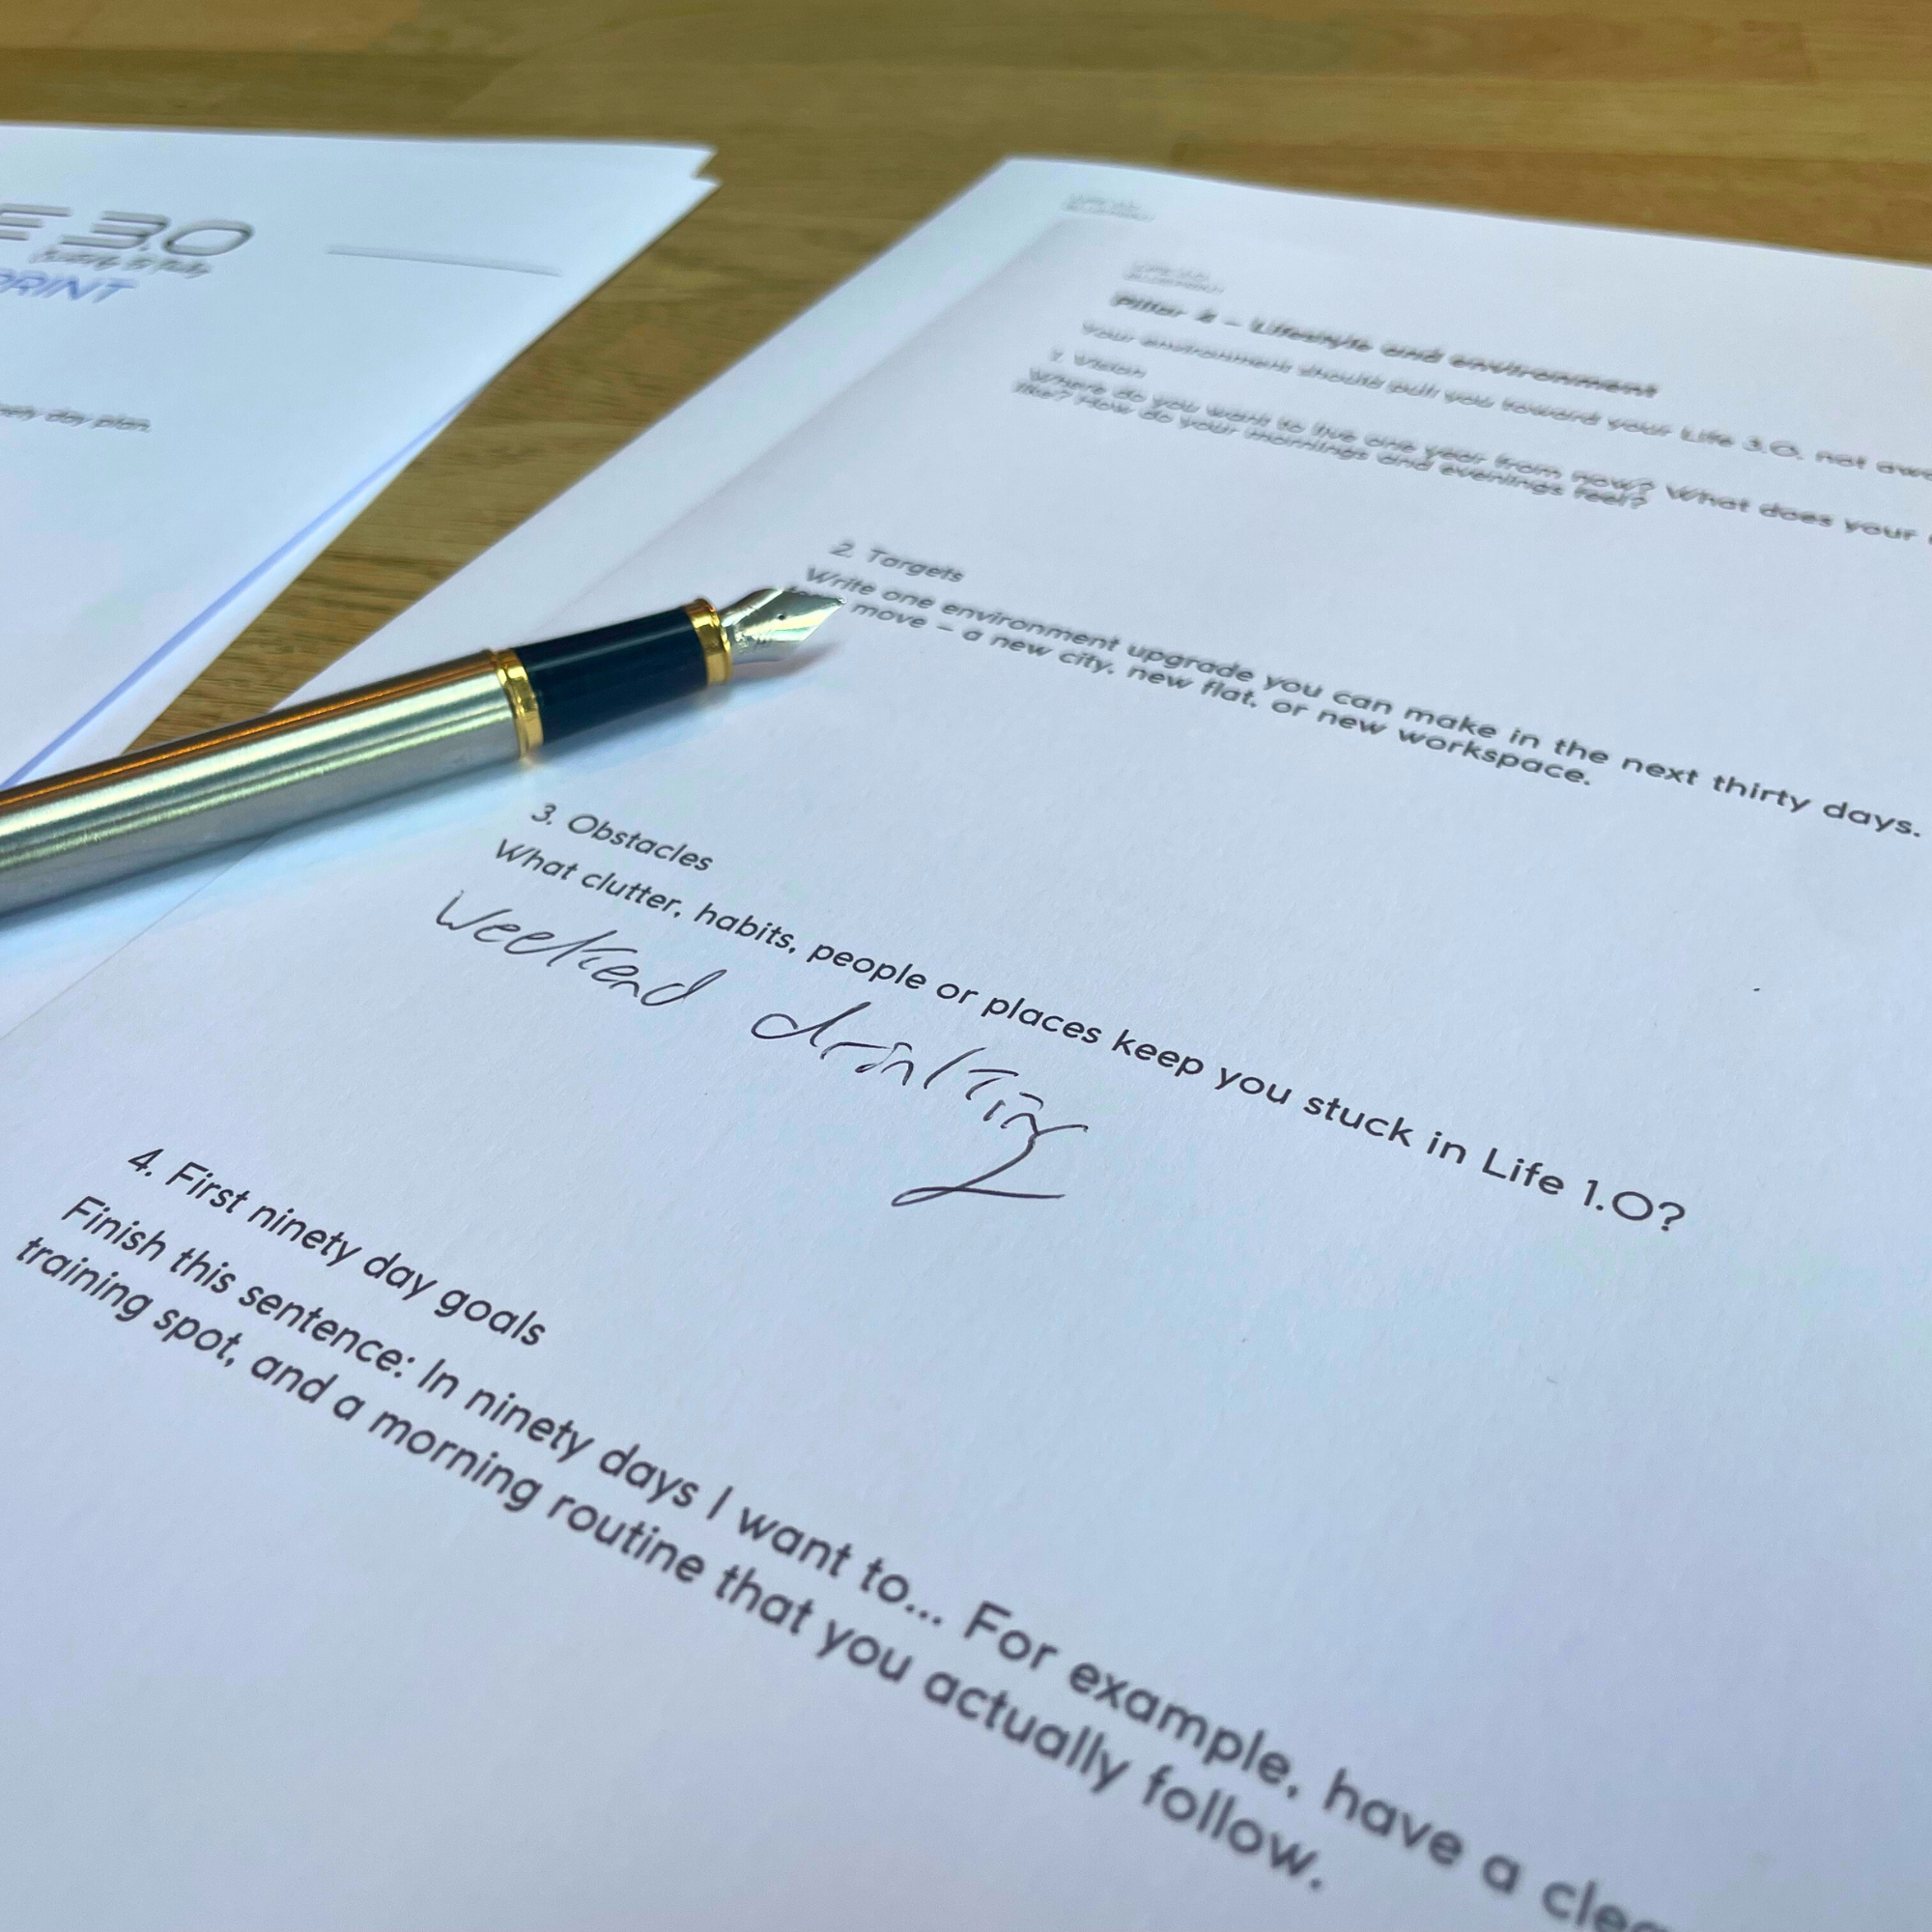 E 3.0
PRINT
day plan.
Pillar 4 – Lifestyle and environment
Your environment should pull you toward your Life 3.0, not
1. Vision
Where do you want to live one year from now? What does your
like? How do your mornings and evenings feel?
2. Targets
Write one environment upgrade you can make in the next thirty days.
move – a new city, new flat, or new workspace.
3. Obstacles
What clutter, habits, people or places keep you stuck in Life 1.0?
Weekend drinking
4. First ninety day goals
Finish this sentence: In ninety days I want to... For example, have a
training spot, and a morning routine that you actually follow.